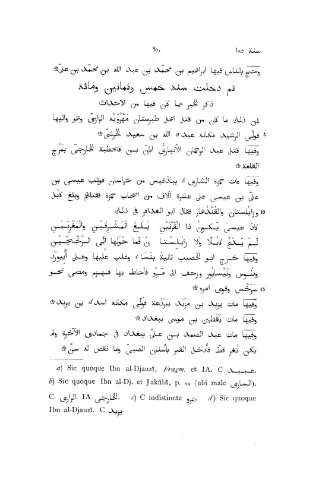 سنة ١٨٥ ٦٥٠
وحج بالناس فيها ابراهيم بن محمد بن عبد الله بن محمد بن علىّ ۞
ثم دخلت سنة خمس وثمانين ومائة
ذكر الخبر عما كان فيها من الاحداث
فمن ذلك ما كان من قتل اهل طبرستان مهرويه الرازىّ وهو واليها
فولّى الرشيد مكانه عبد الله بن سعيد الحرشىّ ۞
وفيها قتل عبد الرحمان الابناوىّ ابان بن قحطبة الخارجىّ بمرج
القلعة ۞
وفيها عاث حمزة الشارى بباذغيس من خراسان فوثب عيسى بن
علىّ بن عيسى على عشرة آلاف من اصحاب حمزة فقتلهم وبلغ كابل
وزابلستان والقندهار فقال ابو العذافر فى ذلك
كاد عيسى يكون ذا القرنين بلغ المشرقين والمغربين
لم يدع كابلا ولا زابلستان فما حولها الى الرخجين
وفيها خرج ابو الخصيب ثانية بنسا وغلب عليها وعلى أبيورد
وطوس ونيسابور وزحف الى مرو فأحاط بها فهزم ومضى نحو
سرخس وقوى امره ۞
وفيها مات يزيد بن مزيد ببرذعة فولّى مكانه اسد بن يزيد ۞
وفيها مات يقطين بن موسى ببغداد ۞
وفيها مات عبد الصمد بن علىّ ببغداد فى جمادى الآخرة ولم
يكن ثغر قط فأدخل القبر بأسنان الصبىّ وما نقص له سنّ ۞
a) Sic quoque Ibn al-Djauzî, Fragm. et IA. C عبيد.
b) Sic quoque Ibn al-Dj. et Jakûbî, p. (ubi male الشارى).
C الرازى. IA الخارجى. c) C indistincte مرو. d) Sic quoque
Ibn al-Djauzî. C يزيد.